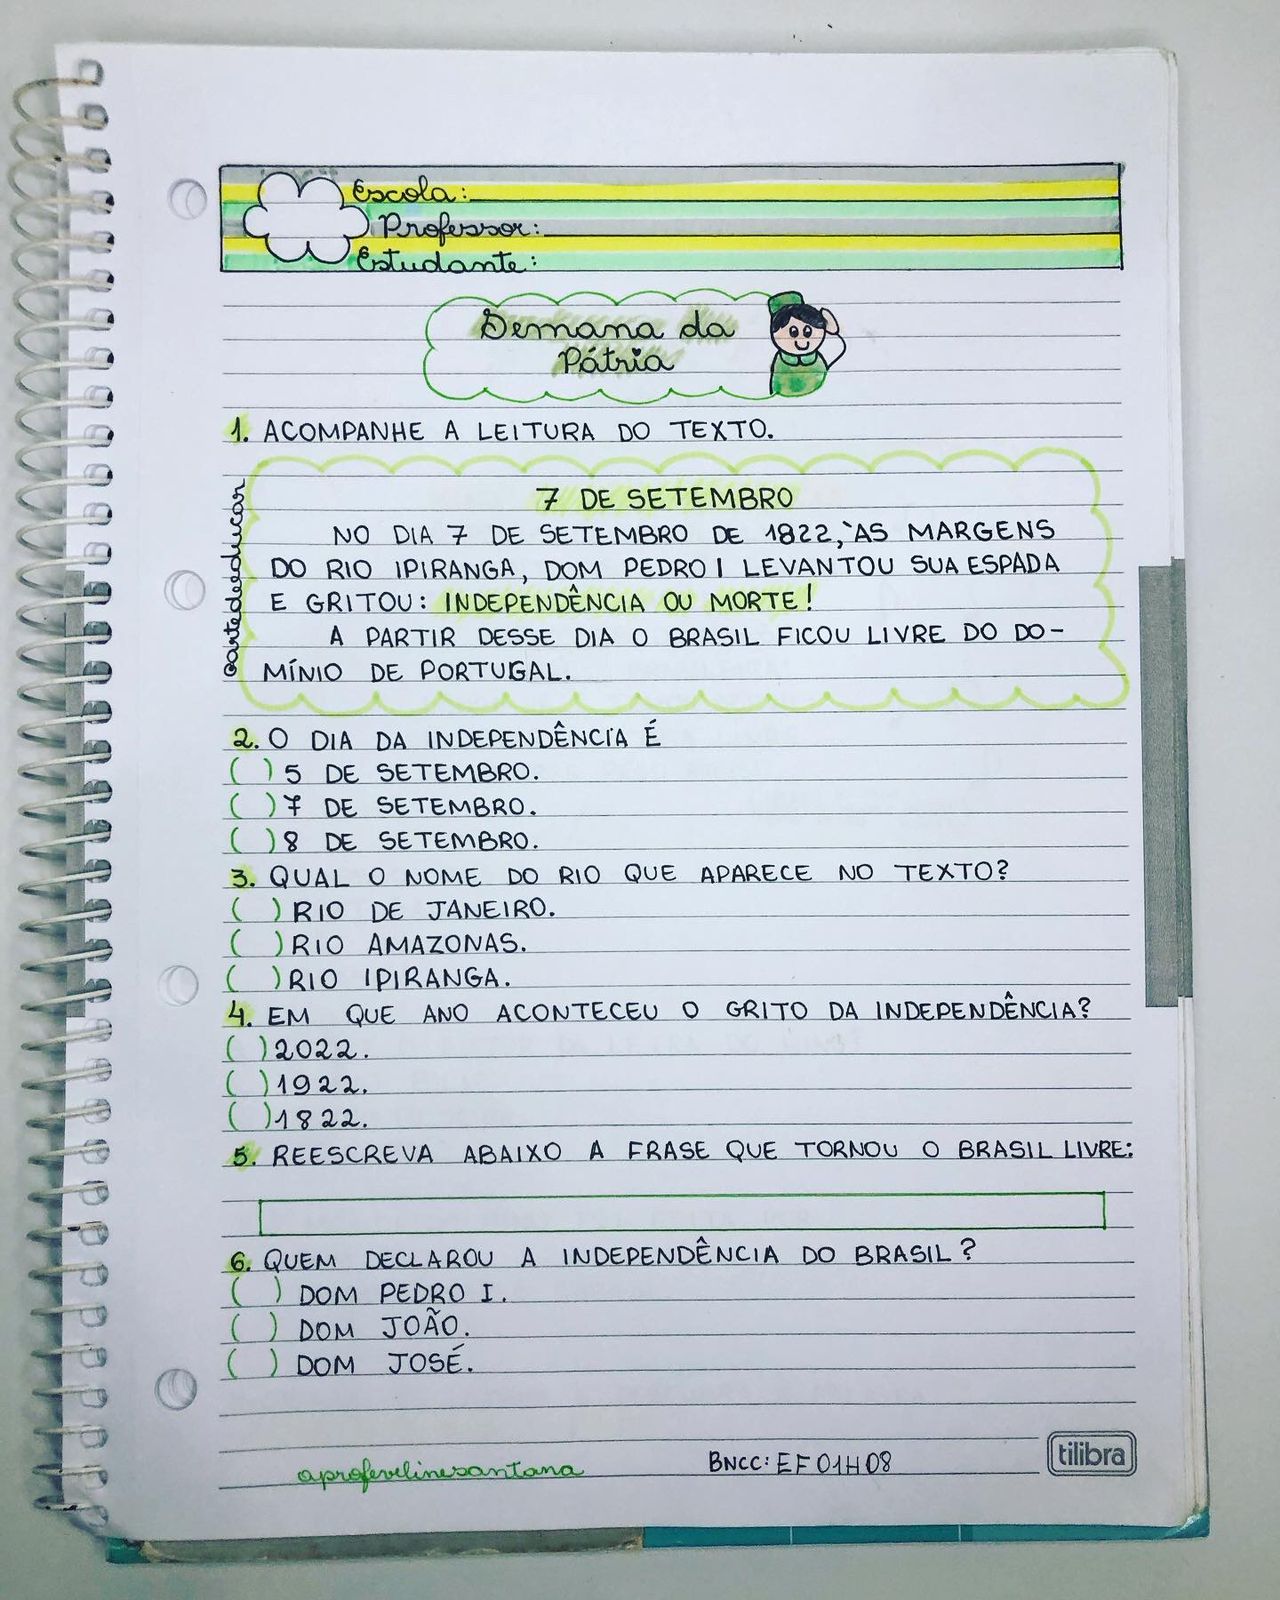 Escola:
Professor:
Estudante:
Semana da
Pátria
1. ACOMPANHE A LEITURA DO TEXTO.
@artedeeducar
7 DE SETEMBRO
NO DIA 7 DE SETEMBRO DE 1822, ÀS MARGENS
DO RIO IPIRANGA, DOM PEDRO I LEVANTOU SUA ESPADA
E GRITOU: INDEPENDÊNCIA OU MORTE!
A PARTIR DESSE DIA O BRASIL FICOU LIVRE DO DO-
MÍNIO DE PORTUGAL.
2. O DIA DA INDEPENDÊNCIA É
( ) 5 DE SETEMBRO.
( ) 7 DE SETEMBRO.
( ) 8 DE SETEMBRO.
3. QUAL O NOME DO RIO QUE APARECE NO TEXTO?
( ) RIO DE JANEIRO.
( ) RIO AMAZONAS.
( ) RIO IPIRANGA.
4. EM QUE ANO ACONTECEU O GRITO DA INDEPENDÊNCIA?
( ) 2022.
( ) 1922.
( ) 1822.
5. REESCREVA ABAIXO A FRASE QUE TORNOU O BRASIL LIVRE:
6. QUEM DECLAROU A INDEPENDÊNCIA DO BRASIL?
( ) DOM PEDRO I.
( ) DOM JOÃO.
( ) DOM JOSÉ.
@profevelinesantana
BNCC: EF01H08
tilibra